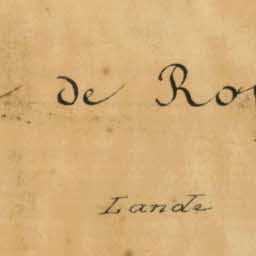 de Ro
Lande